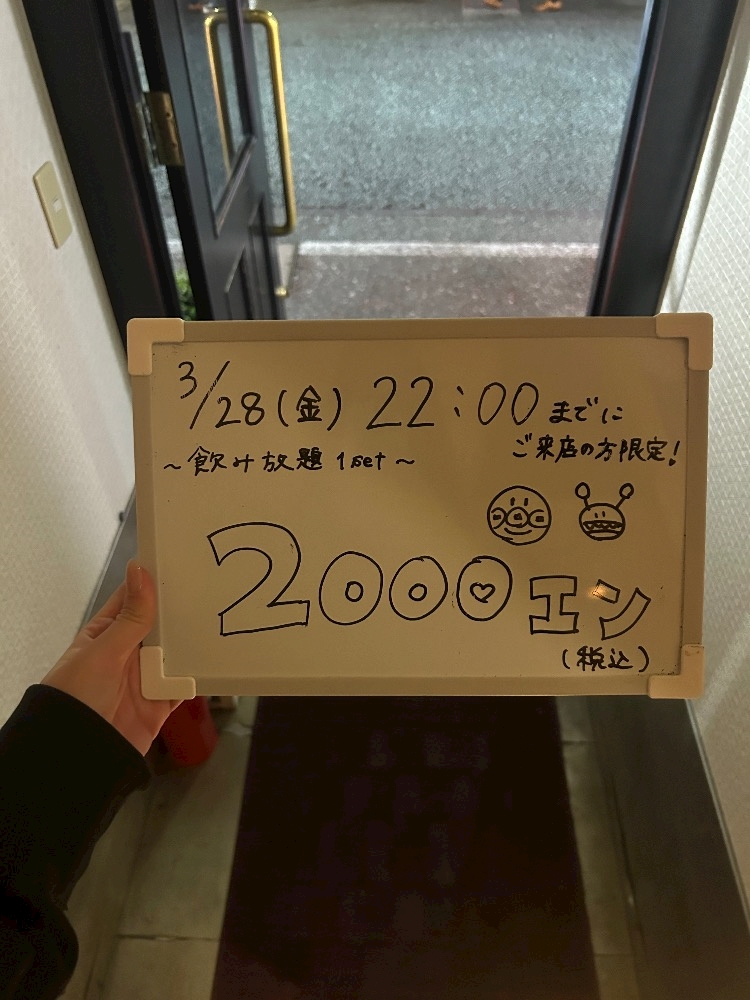 3/28(金) 22:00 までに
ご来店の方限定!
~飲み放題 1set~
2000エン
(税込)